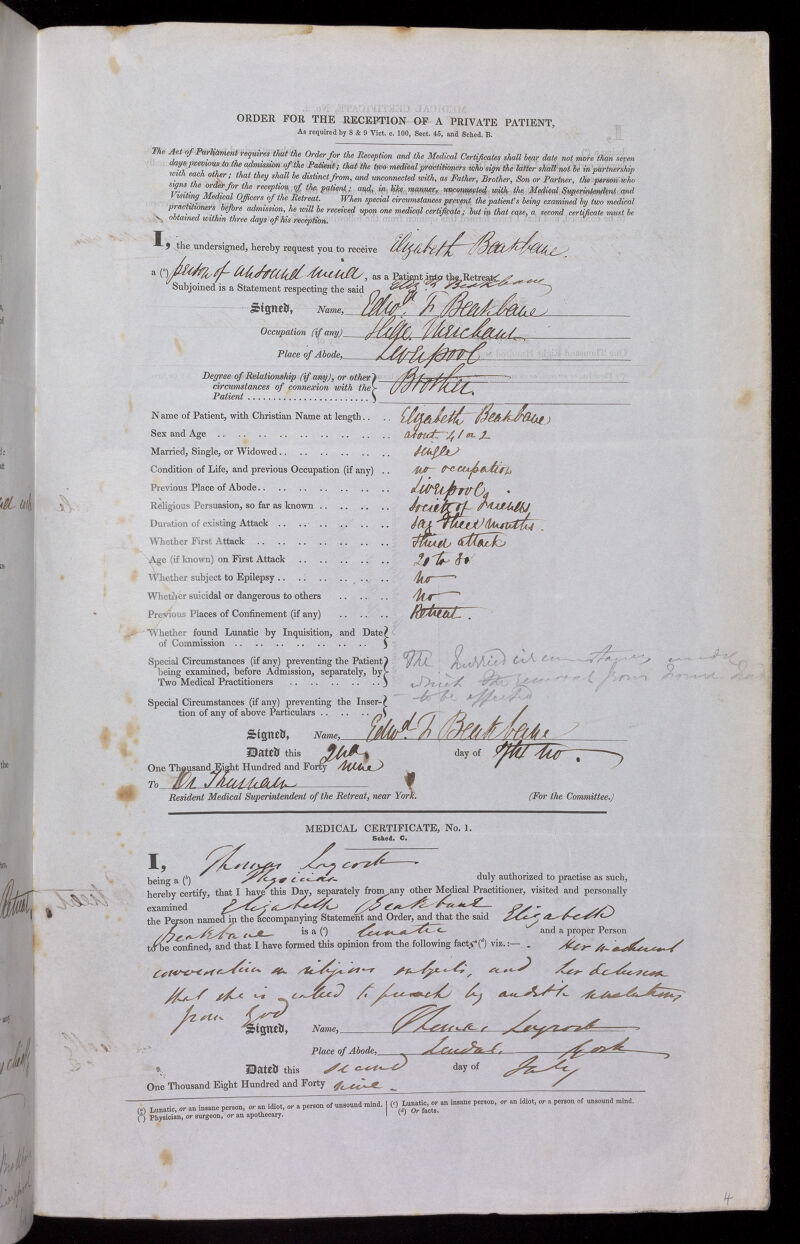 ORDER FOR THE RECEPTION OF A PRIVATE PATIENT,
As required by 8 & 9 Vict. c. 100, Sect. 45, and Sched. B.
The Act of Parliament requires that the Order for the Reception and the Medical Certificates shall bear date not more than seven
days previous to the admission of the Patient; that the two medical practitioners who sign the latter shall not be in partnership
with each other; that they shall be distinct from, and unconnected with, as Father, Brother, Son or Partner, the person who
signs the order for the reception of the patient; and, in like manner, unconnected with the Medical Superintendent and
Visiting Medical Officers of the Retreat. When special circumstances prevent the patient's being examined by two medical
practitioners before admission, he will be received upon one medical certificate; but in that case, a second certificate must be
obtained within three days of his reception.
I, the undersigned, hereby request you to receive Elizabeth Beakbane.
a (a) person of unsound mind, as a Patient into the Retreat.
Subjoined is a Statement respecting the said Eliz. Beakbane
Signed, Name, Edwd. Beakbane
Occupation (if any) Hide Merchant
Place of Abode, Liverpool
Degree of Relationship (if any), or other
circumstances of connexion with the
Patient Brother.
Name of Patient, with Christian Name at length Elizabeth Beakbane
Sex and Age about 41 or 2
Married, Single, or Widowed single
Condition of Life, and previous Occupation (if any) no occupation
Previous Place of Abode Liverpool
Religious Persuasion, so far as known Society of Friends
Duration of existing Attack say three months.
Whether First Attack third attack
Age (if known) on First Attack 20 to 30
Whether subject to Epilepsy no
Whether suicidal or dangerous to others no
Previous Places of Confinement (if any) Retreat.
Whether found Lunatic by Inquisition, and Date
of Commission
Special Circumstances (if any) preventing the Patient The hurried circumstances under
being examined, before Admission, separately, by which the removal from home had
Two Medical Practitioners to be effected
Special Circumstances (if any) preventing the Inser-
tion of any of above Particulars
Signed, Name, Edwd. Beakbane
Dated this 2nd day of 7th mo.
One Thousand Eight Hundred and Forty nine
To Dr Thurnam
Resident Medical Superintendent of the Retreat, near York. (For the Committee.)
MEDICAL CERTIFICATE, No. 1.
Sched. C.
I, Thomas Laycock
being a (b) Physician duly authorized to practise as such,
hereby certify, that I have this Day, separately from any other Medical Practitioner, visited and personally
examined Elizabeth Beakbane
the Person named in the accompanying Statement and Order, and that the said Elizabeth
Beakbane is a (c) lunatic and a proper Person
to be confined, and that I have formed this opinion from the following facts (d) viz.:— Her incoherent
conversation on religious subjects, and her delusion
that she is called to preach by audible revelations
from God
Signed, Name, Thomas Laycock
Place of Abode, Lendal, York
Dated this second day of July
One Thousand Eight Hundred and Forty nine
(a) Lunatic, or an insane person, or an idiot, or a person of unsound mind.
(b) Physician, or surgeon, or an apothecary.
(c) Lunatic, or an insane person, or an idiot, or a person of unsound mind.
(d) Or facts.
4